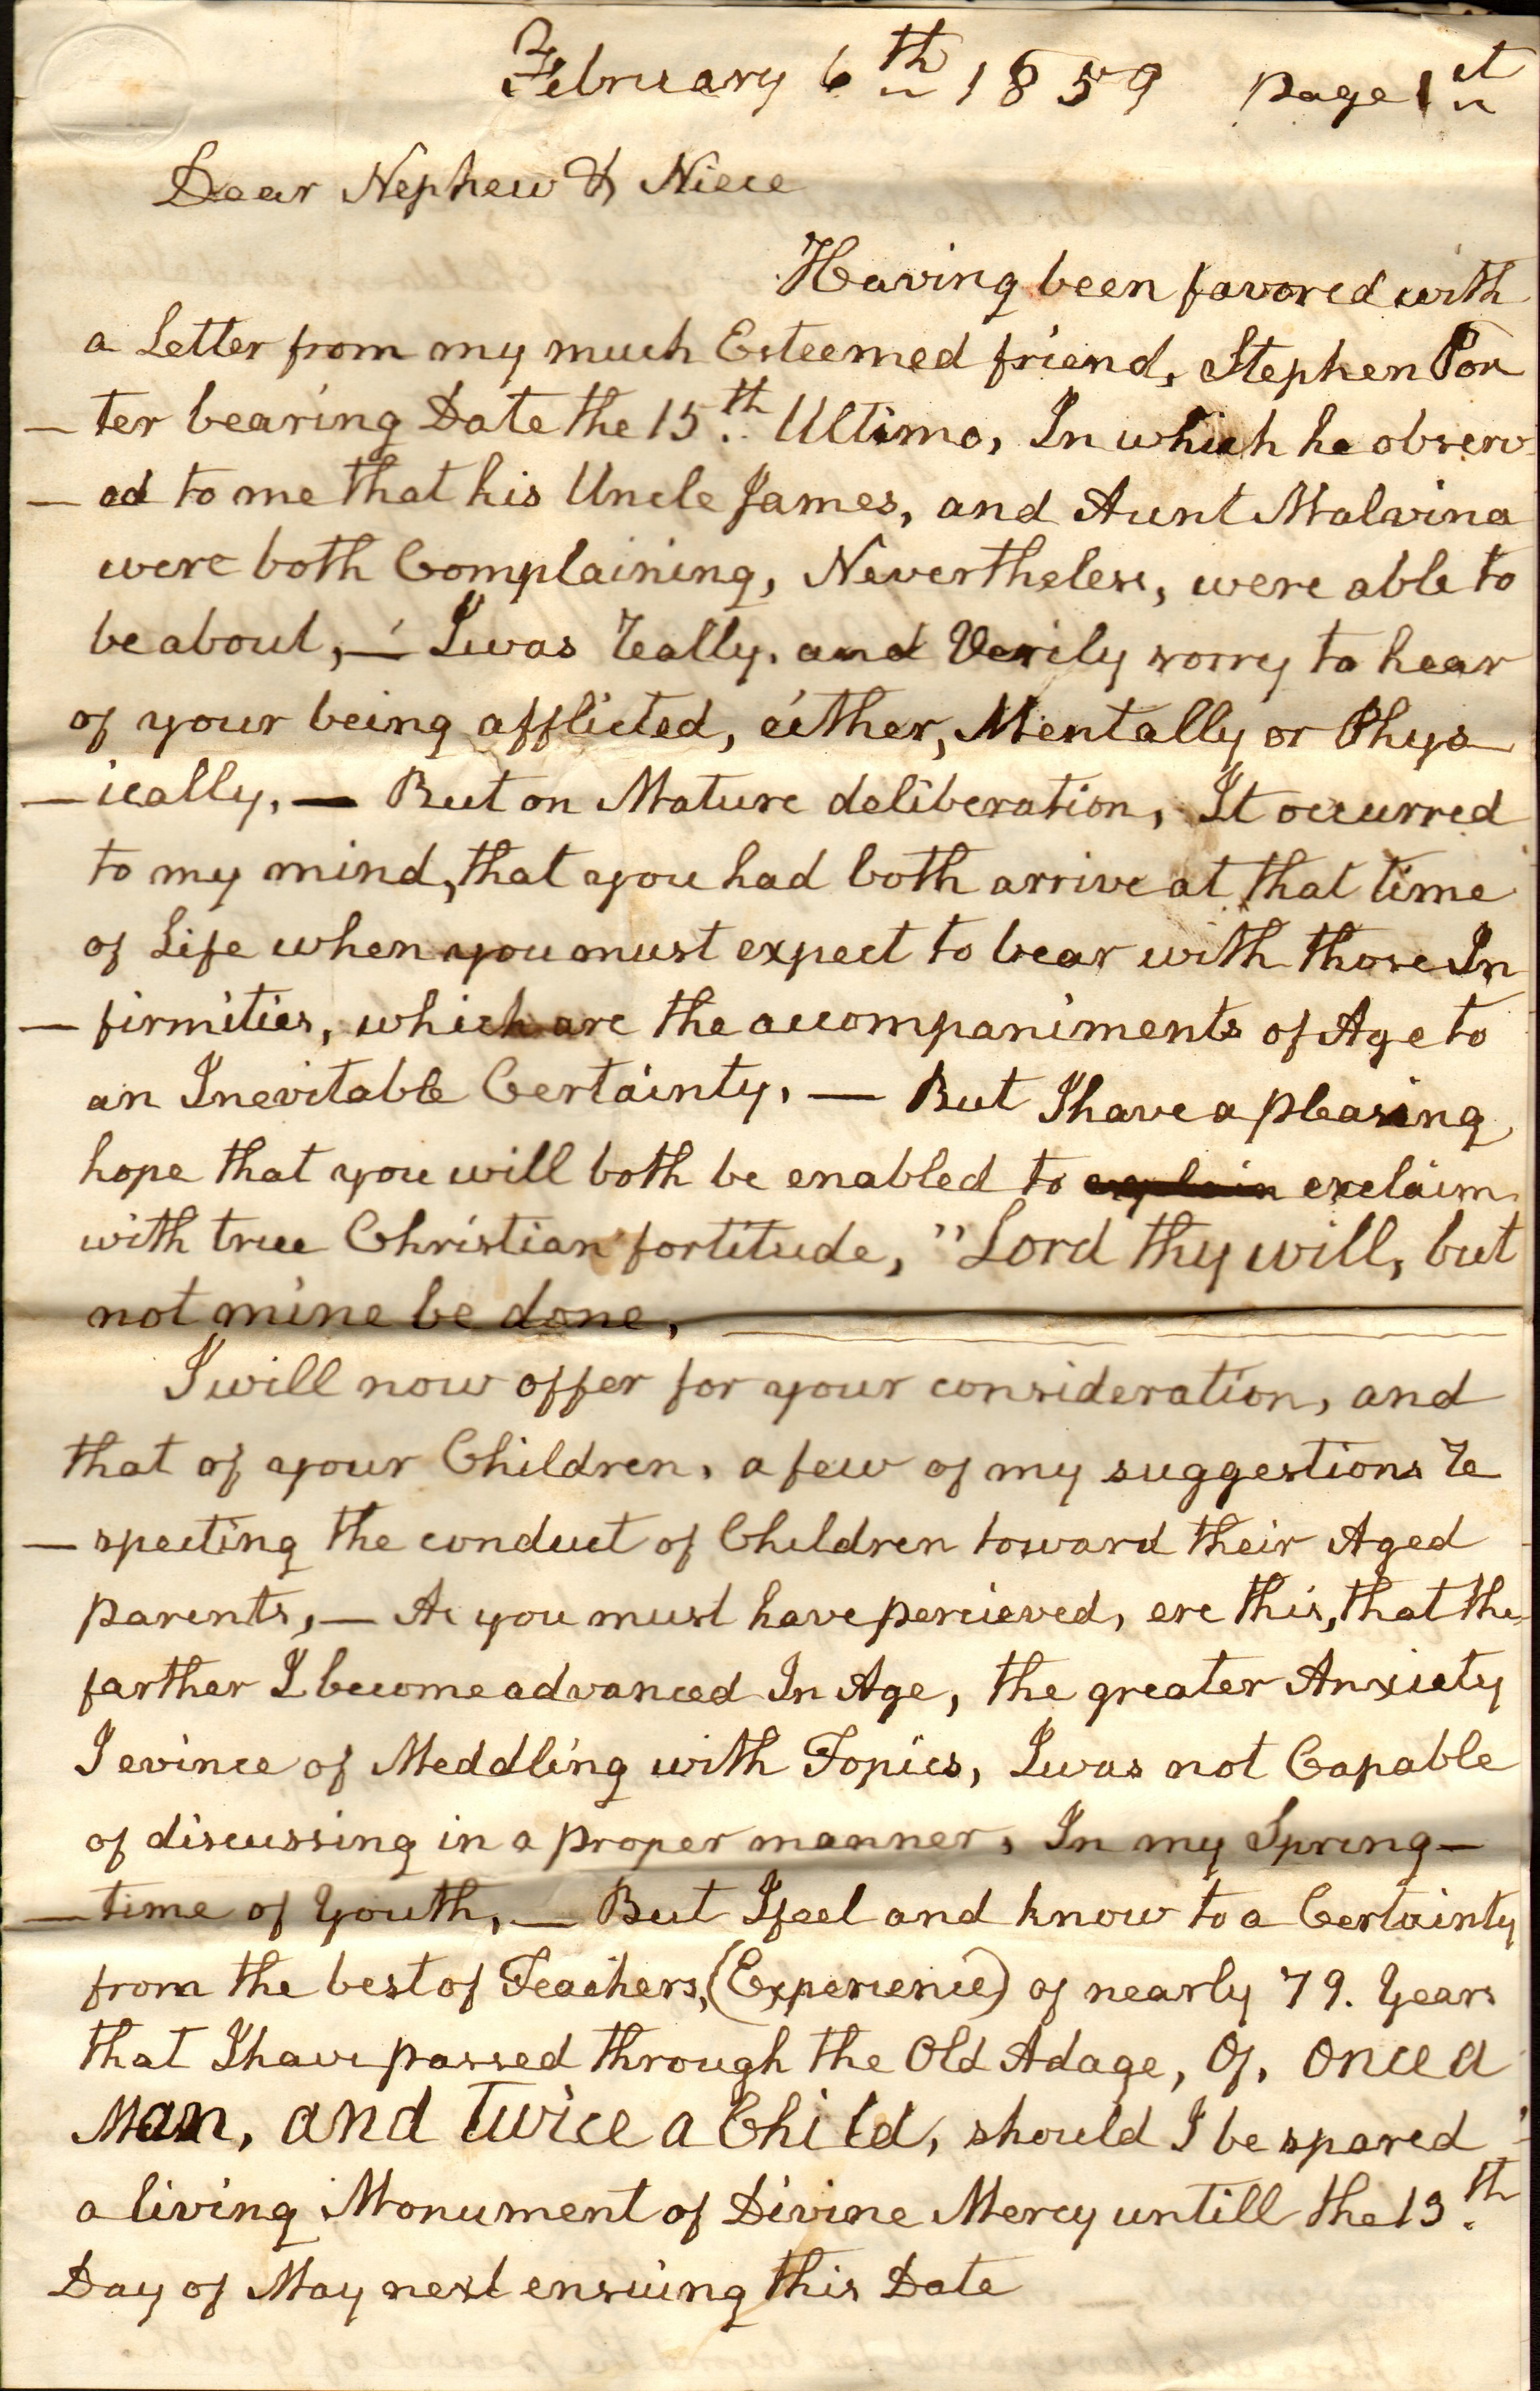 February 6th 1859 Page 1st
Dear Nephew & Niece
Having been favored with
a Letter from my much Esteemed friend, Stephen Por
– ter bearing Date the 15th Ultimo, In which he observ
– ed to me that his Uncle James, and Aunt Malvina
were both Complaining, Nevertheless, were able to
be about, – I was Really, and Verily sorry to hear
of your being afflicted, either, Mentally or Phys
– ically, – But on Mature deliberation, It occurred
to my mind, that you had both arrive at that time
of Life when you must expect to bear with those In
– firmities, which are the accompaniments of Age to
an Inevitable Certainty, – But I have a pleasing
hope that you will both be enabled to explain exclaim
with true Christian fortitude, "Lord thy will, but
not mine be done,
I will now offer for your consideration, and
that of your Children, a few of my suggestions Re
– specting the conduct of Children toward their Aged
parents, – As you must have percieved, ere this, that the
farther I become advanced In Age, the greater Anxiety
I evince of Meddling with Topics, I was not Capable
of discussing in a proper manner, In my Spring –
– time of Youth, – But I feel and know to a Certainty
from the best of Teachers, (Experience) of nearly 79. Years
that I have passed through the Old Adage, Of, Once a
Man, and Twice a Child, should I be spared
a living Monument of Divine Mercy untill the 13th
Day of May next ensuing this Date